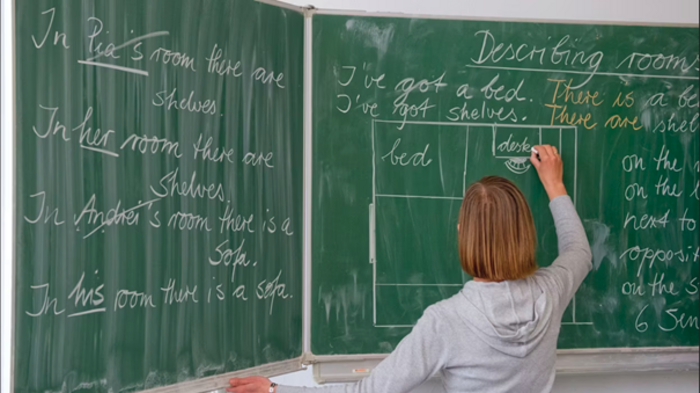 In Pia's room there are
shelves.
In her room there are
shelves.
In Andrei's room there is a
sofa.
In his room there is a sofa.
Describing room
I've got a bed. There is a be
I've got shelves. There are shel
bed
desk
on the
on the
next to
opposit
on the
6 Sen